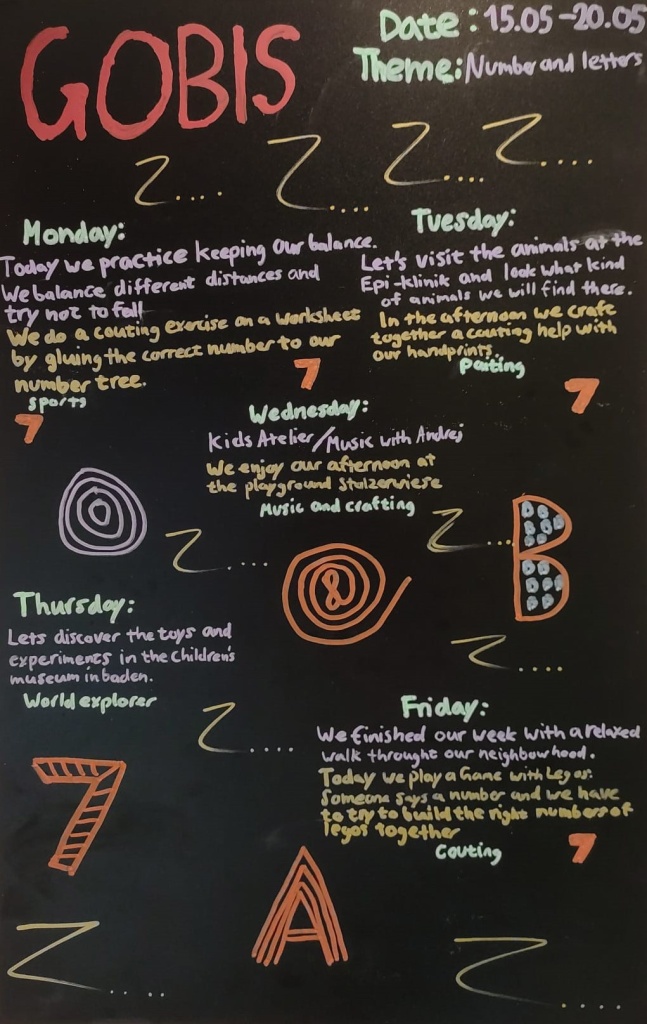 GOBIS
Date: 15.05-20.05
Theme: Number and letters
Z....
Z....
Z....
Z....
Monday:
Today we practice keeping our balance.
We balance different distances and
try not to fall
We do a couting exercise on a worksheet
by gluing the correct number to our
number tree.
sports
7
7
Tuesday:
Let's visit the animals at the
Epi-klinik and look what kind
of animals we will find there.
In the afternoon we crafe
together a couting help with
our handprints.
Paiting
7
Wednesday:
Kids Atelier/Music with Andrej
We enjoy our afternoon at
the playground Stolzenwiese
Music and crafting
Z....
Z....
8
B
Z....
Thursday:
Lets discover the toys and
experiments in the Children's
museum in baden.
World explorer
Z....
Friday:
We finished our week with a relaxed
walk throught our neighbourhood.
Today we play a Game with Legos.
Someone says a number and we have
to try to build the right numbers of
legos together
Couting
7
7
A
Z....
Z....